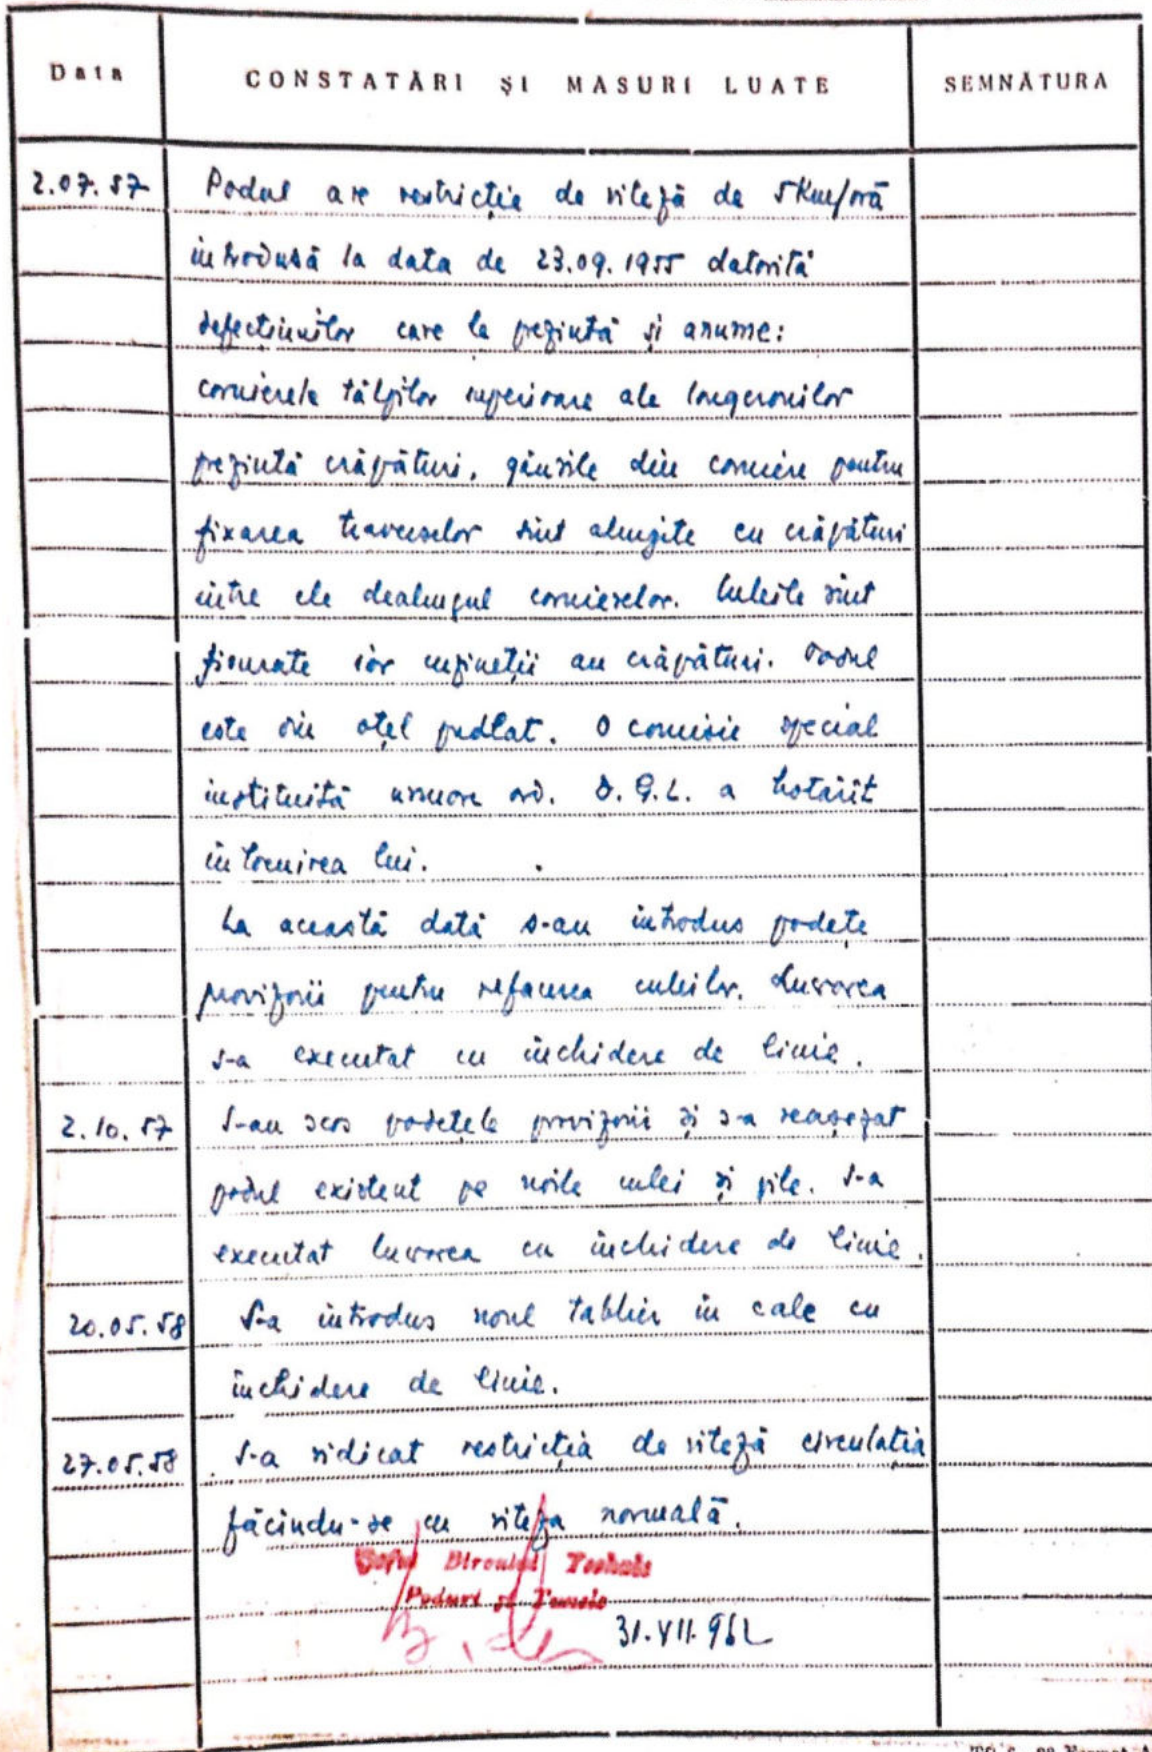 Data CONSTATĂRI ŞI MASURI LUATE SEMNĂTURA
2.07.57 Podul are restricția de viteză de 5 Km/oră
introdusă la data de 23.09.1955 datorită
defecțiunilor care le prezintă și anume:
cornierele tălpilor superioare ale longeronilor
prezintă crăpături, găurile din corniere pentru
fixarea traverselor sint alungite cu crăpături
intre ele dealungul cornierelor. Culeile sint
fisurate iar cuzineții au crăpături. Podul
este din oțel pudlat. O comisie special
instituită ord. D.G.L. a hotărît
inlocuirea lui.
La această dată s-au introdus podețe
provizorii pentru refacerea culeilor. Lucrarea
s-a executat cu închidere de linie.
2.10.57 S-au scos podețele provizorii și s-a reașezat
podul existent pe noile culei și pile. S-a
executat lucrarea cu închidere de linie.
20.05.58 S-a introdus noul tablier în cale cu
închidere de linie.
27.05.58 S-a ridicat restricția de viteză circulația
făcindu-se cu viteza normală.
Șeful Biroului Technic
Poduri și Tunele
31.VII.962